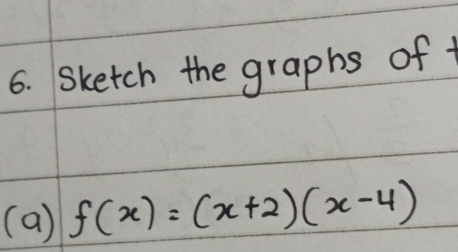 6. Sketch the graphs of
(a) f(x) = (x+2)(x-4)